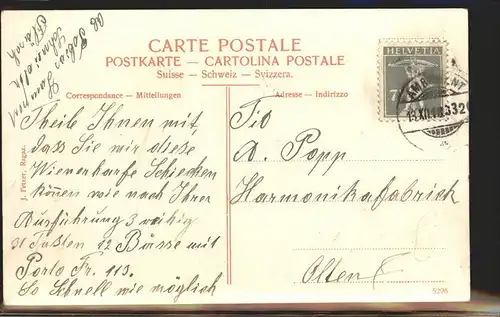 CARTE POSTALE
POSTKARTE - CARTOLINA POSTALE
Suisse - Schweiz - Svizzera.
Correspondance - Mitteilungen
Adresse - Indirizzo
HELVETIA
J. Fetzer, Ragaz.
Theile Ihnen mit,
dass Sie mir diese
Wienerharfe Schicken
können wie nach Ihrer
Ausführung 3 reihig
31 Tasten 12 Bässe mit
Porto Fr. 113.
So Schnell wie möglich
Tit
A. Popp
Harmonikafabrick
Olten
5296